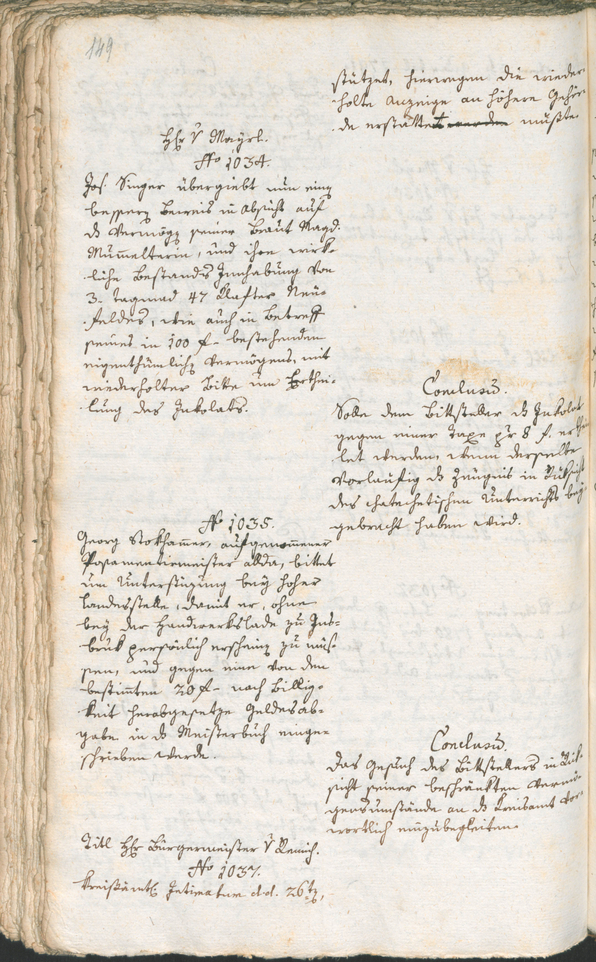 149
stützet, hierwegen die wieder-
holte Anzeige an höhere Gehör-
de erstattet werden müßte
Hr. v Mayrl.
No 1034.
Jos. Singer übergiebt nun einen
bessern Beweis in Absicht auf
ds Vermögen seiner Braut Magd.
Mumelterin, und ihre wirk-
liche Bestands Innhabung von
3. tagmad 47 Klafter Neu-
feldes, wie auch in Betreff
seines in 100 f. bestehenden
eigenthümlichen Vermögens, mit
wiederholter Bitte um Erthei-
lung des Inkolats.
Conclusū.
Solle dem Bittsteller ds Inkolat
gegen einer Taxe pr 8 f. erthei
let werden, wenn derselbe
vorläufig ds Zeugnis in Rüksicht
des chatechetischen Unterrichts bey-
gebracht haben wird.
No 1035.
Georg Stokhamer, aufgenommener
Posamentirmeister allda, bittet
um Unterstüzung bey hoher
Landesstelle, damit er, ohne
bey der Handwerkslade zu Ins-
bruk persönlich erscheinen zu müs-
sen, und gegen eine von den
bestimten 20 f. nach Billig-
keit herabgesetzte Geldesab-
gabe in ds Meisterbuch einge-
schrieben werde.
Conclusū.
Das Gesuch des Bittstellers in Rük-
sicht seiner beschränkten Vermö-
gensumstände an ds Kreisamt vor-
wortlich einzubegleiten.
Titl Hr. Bürgermeister v Remich.
No 1037.
Kreisämtl. Intimatum dd. 26ten